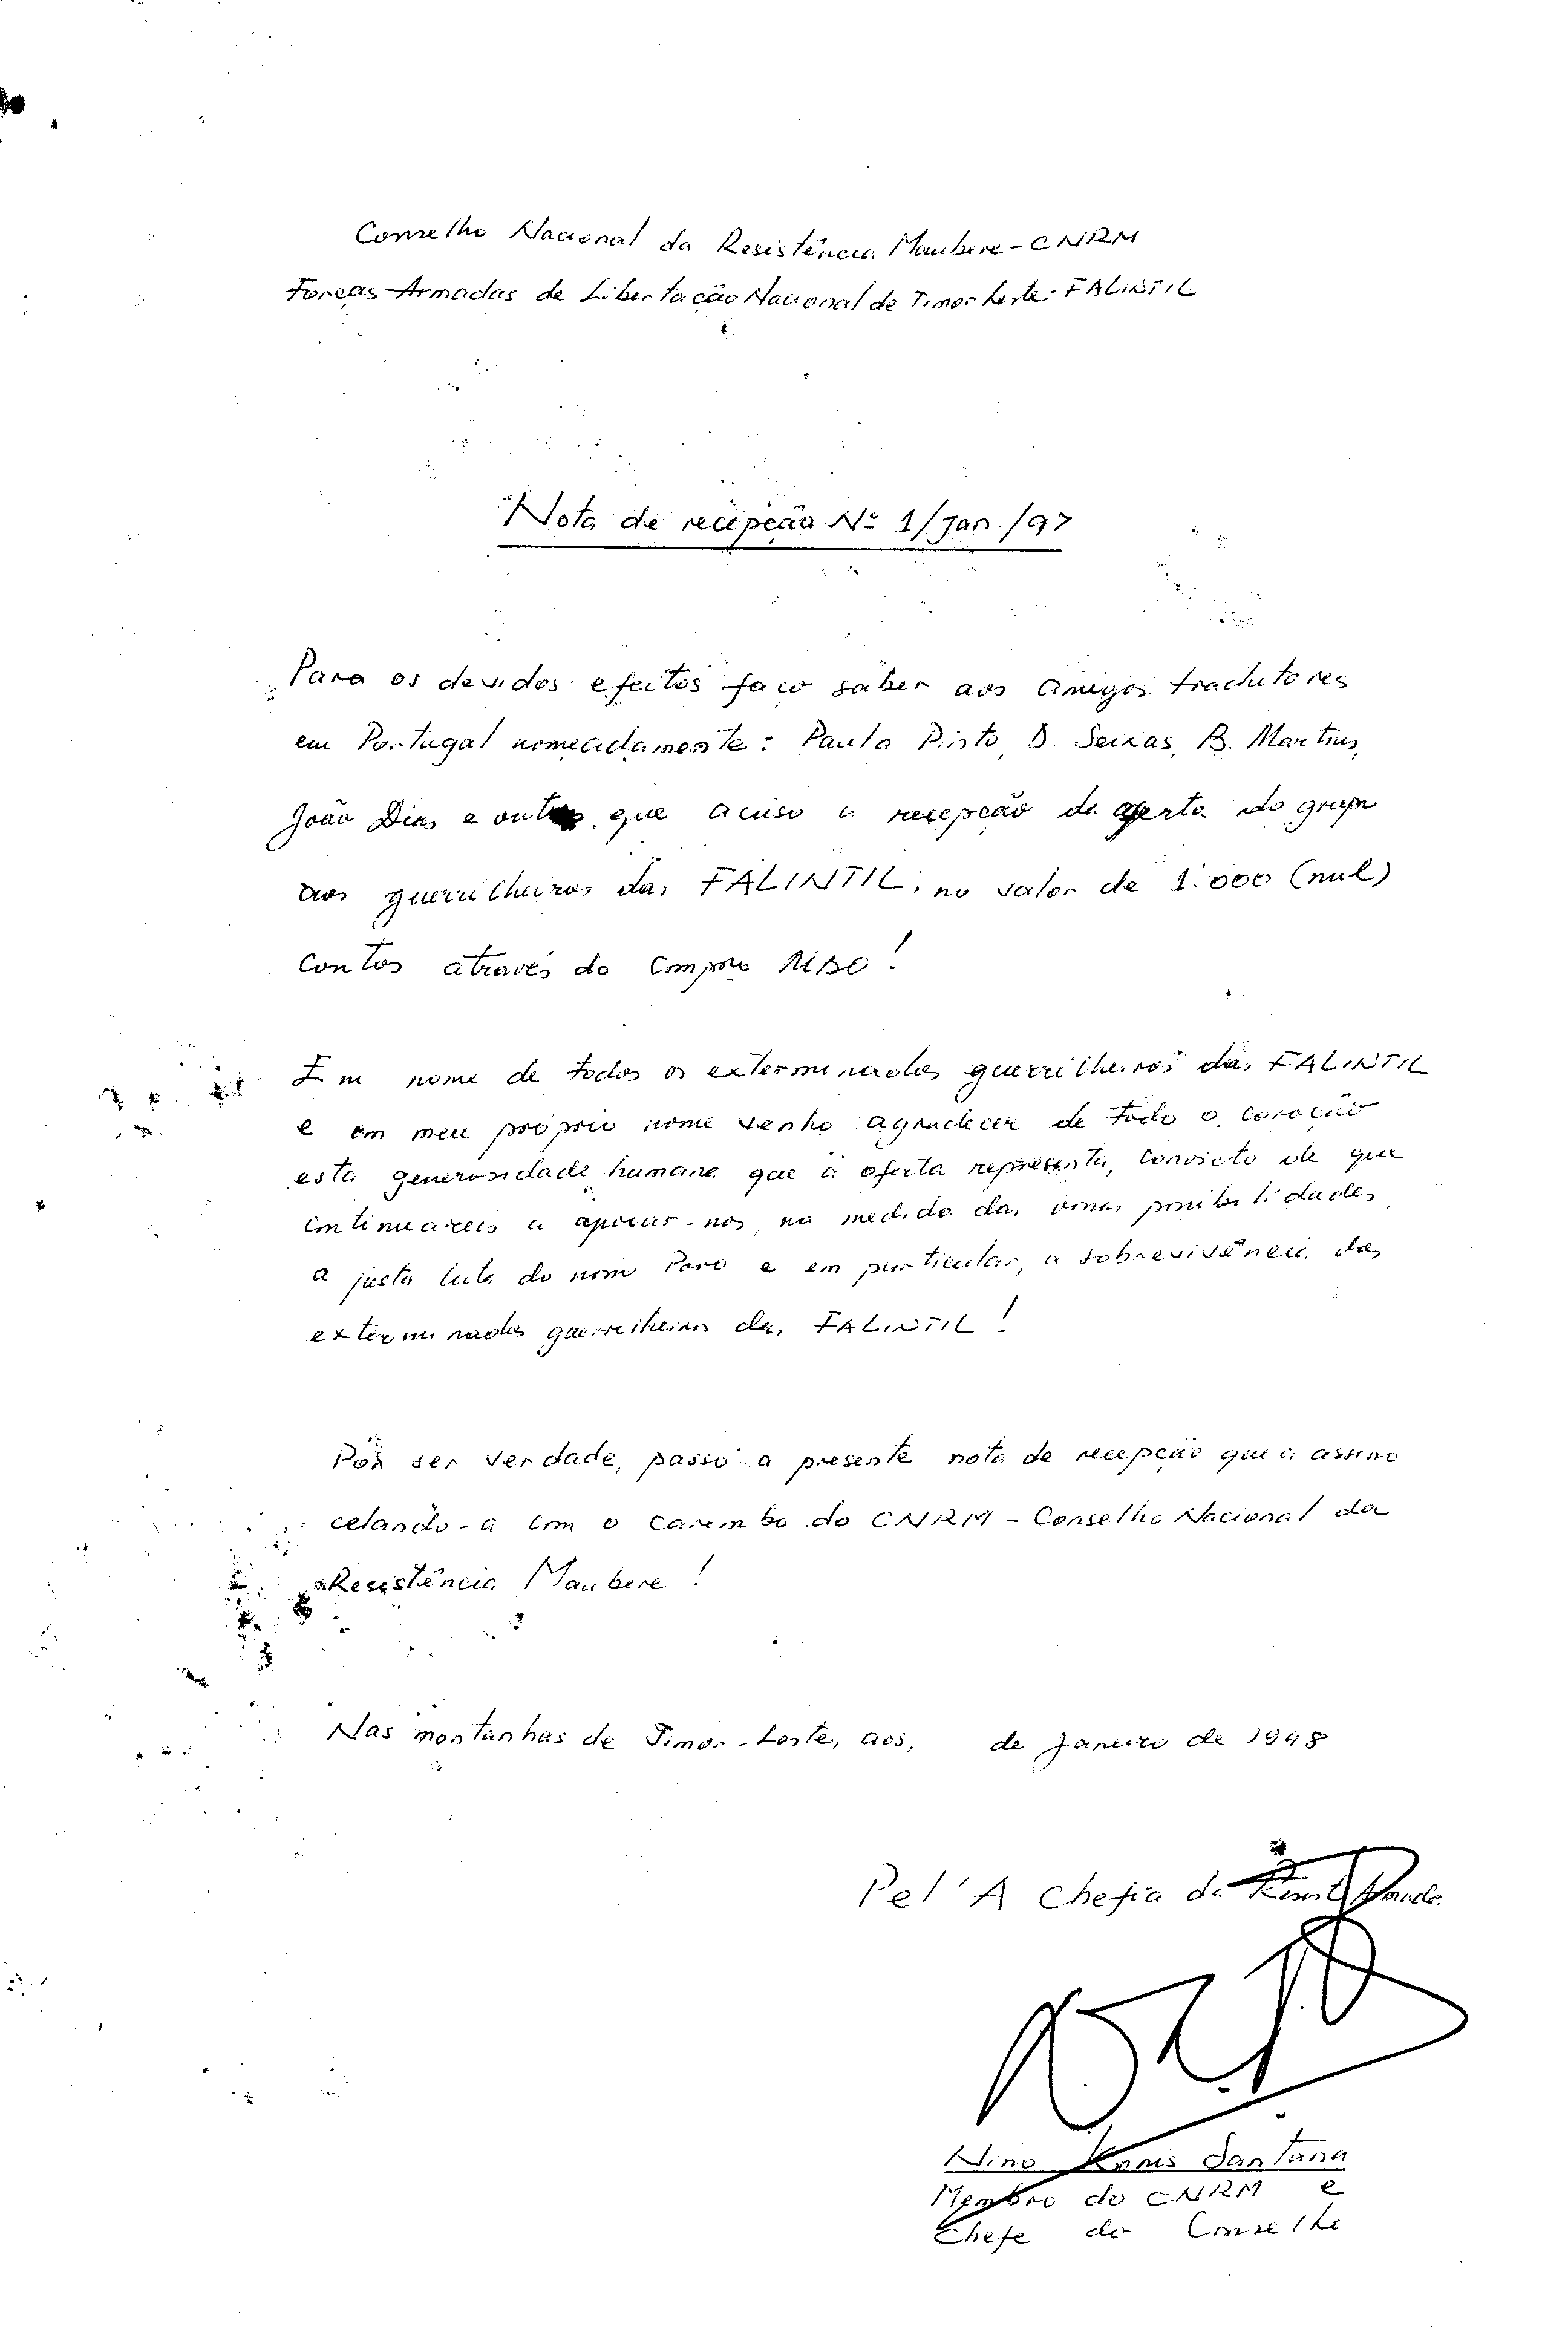 Conselho Nacional da Resistência Maubere - CNRM
Forças Armadas de Libertação Nacional de Timor Leste - FALINTIL
Nota de recepção Nº 1/Jan./97
Para os devidos efeitos faço saber aos amigos tradutores
em Portugal nomeadamente: Paula Pinto, D. Seixas, B. Martins,
João Dias e outros que acuso a recepção da oferta do grupo
aos guerrilheiros das FALINTIL, no valor de 1.000 (mil)
contos através do
Em nome de todos os exterminados guerrilheiros das FALINTIL
e em meu próprio nome venho agradecer de todo o coração
esta generosidade humana que a oferta representa, convicto de que
continuareis a apoiar-nos, na medida das vossas possibilidades,
a justa luta do nosso Povo e, em particular, a sobrevivência dos
exterminados guerrilheiros das FALINTIL!
Por ser verdade, passo a presente nota de recepção que a assino
celando-a com o carimbo do CNRM - Conselho Nacional da
Resistência Maubere!
Nas montanhas de Timor-Leste, aos, de Janeiro de 1998
Pel'A Chefia da
Nino Konis Santana
Membro do CNRM e
Chefe do Conselho